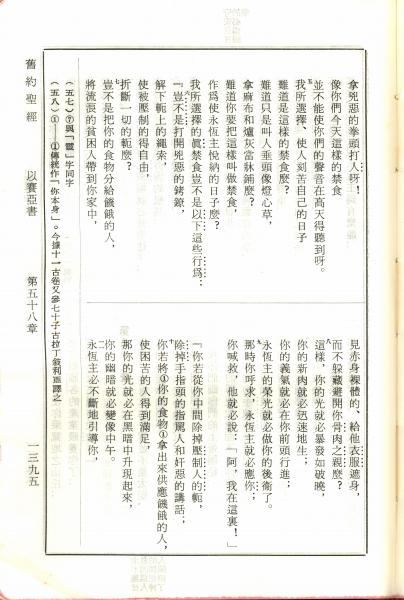 舊約聖經　以賽亞書　第五十八章　一三九五
拿兇惡的拳頭打人呀！
像你們今天這樣的禁食
並不能使你們的聲音在高天得聽到呀。
五我所選擇、使人刻苦自己的日子
難道是這樣的禁食麼？
難道只是叫人垂頭像燈心草，
拿麻布和爐灰當牀鋪麼？
難道你要把這樣叫做禁食，
作爲使永恆主悅納的日子麼？
我所選擇的眞禁食豈不是以下這些行爲：
六『豈不是打開兇惡的銬鐐，
解下軛上的繩索，
使被壓制的得自由，
折斷一切的軛麼？
七豈不是把你的食物分給饑餓的人，
將流浪的貧困人帶到你家中，
見赤身裸體的、給他衣服遮身，
而不躱藏避開你骨肉之親麼？
八這樣，你的光就必暴發如破曉，
你的新肉就必迅速地生；
你的義氣就必在你前頭行進；
永恆主的榮光就必做你的後衞了。
九那時你呼求，永恆主就必應你；
你喊救，他就必說：「阿，我在這裏！」
『你若從你中間除掉壓制人的軛，
除掉手指頭的指駡人和奸惡的講話；
十你若將①你的食物①拿出來供應饑餓的人，
使困苦的人得到滿足，
那你的光就必在黑暗中升現起來，
你的幽暗就必變像中午。
十一永恆主必不斷地引導你，
（五七）⑦與「靈」字同字
（五八）①——①傳統作「你本身」。今據十一古卷又參七十子古拉丁敍利亞譯之